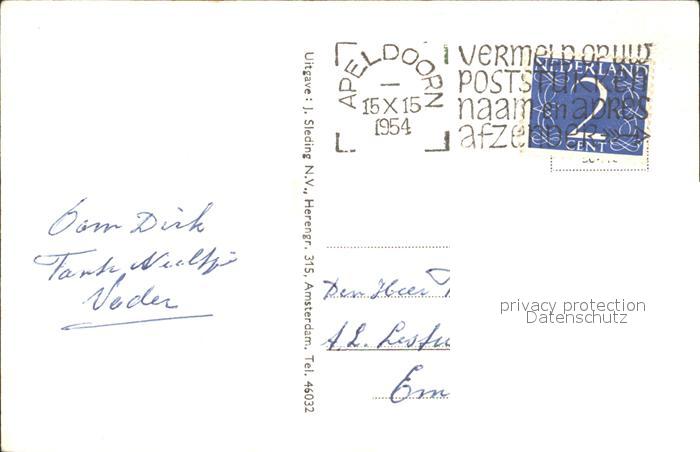 APELDOORN
15 X 15
1954
VERMELD OP UW
POSTSTUKKEN
naam en adres
afzender
NEDERLAND
2
CENT
Uitgave: J. Sleding N.V., Herengr. 315, Amsterdam. Tel. 46032
Oom Dirk
Tante Neeltje
Vader
Den Heer
A.L. Lesfu
Em
privacy protection
Datenschutz